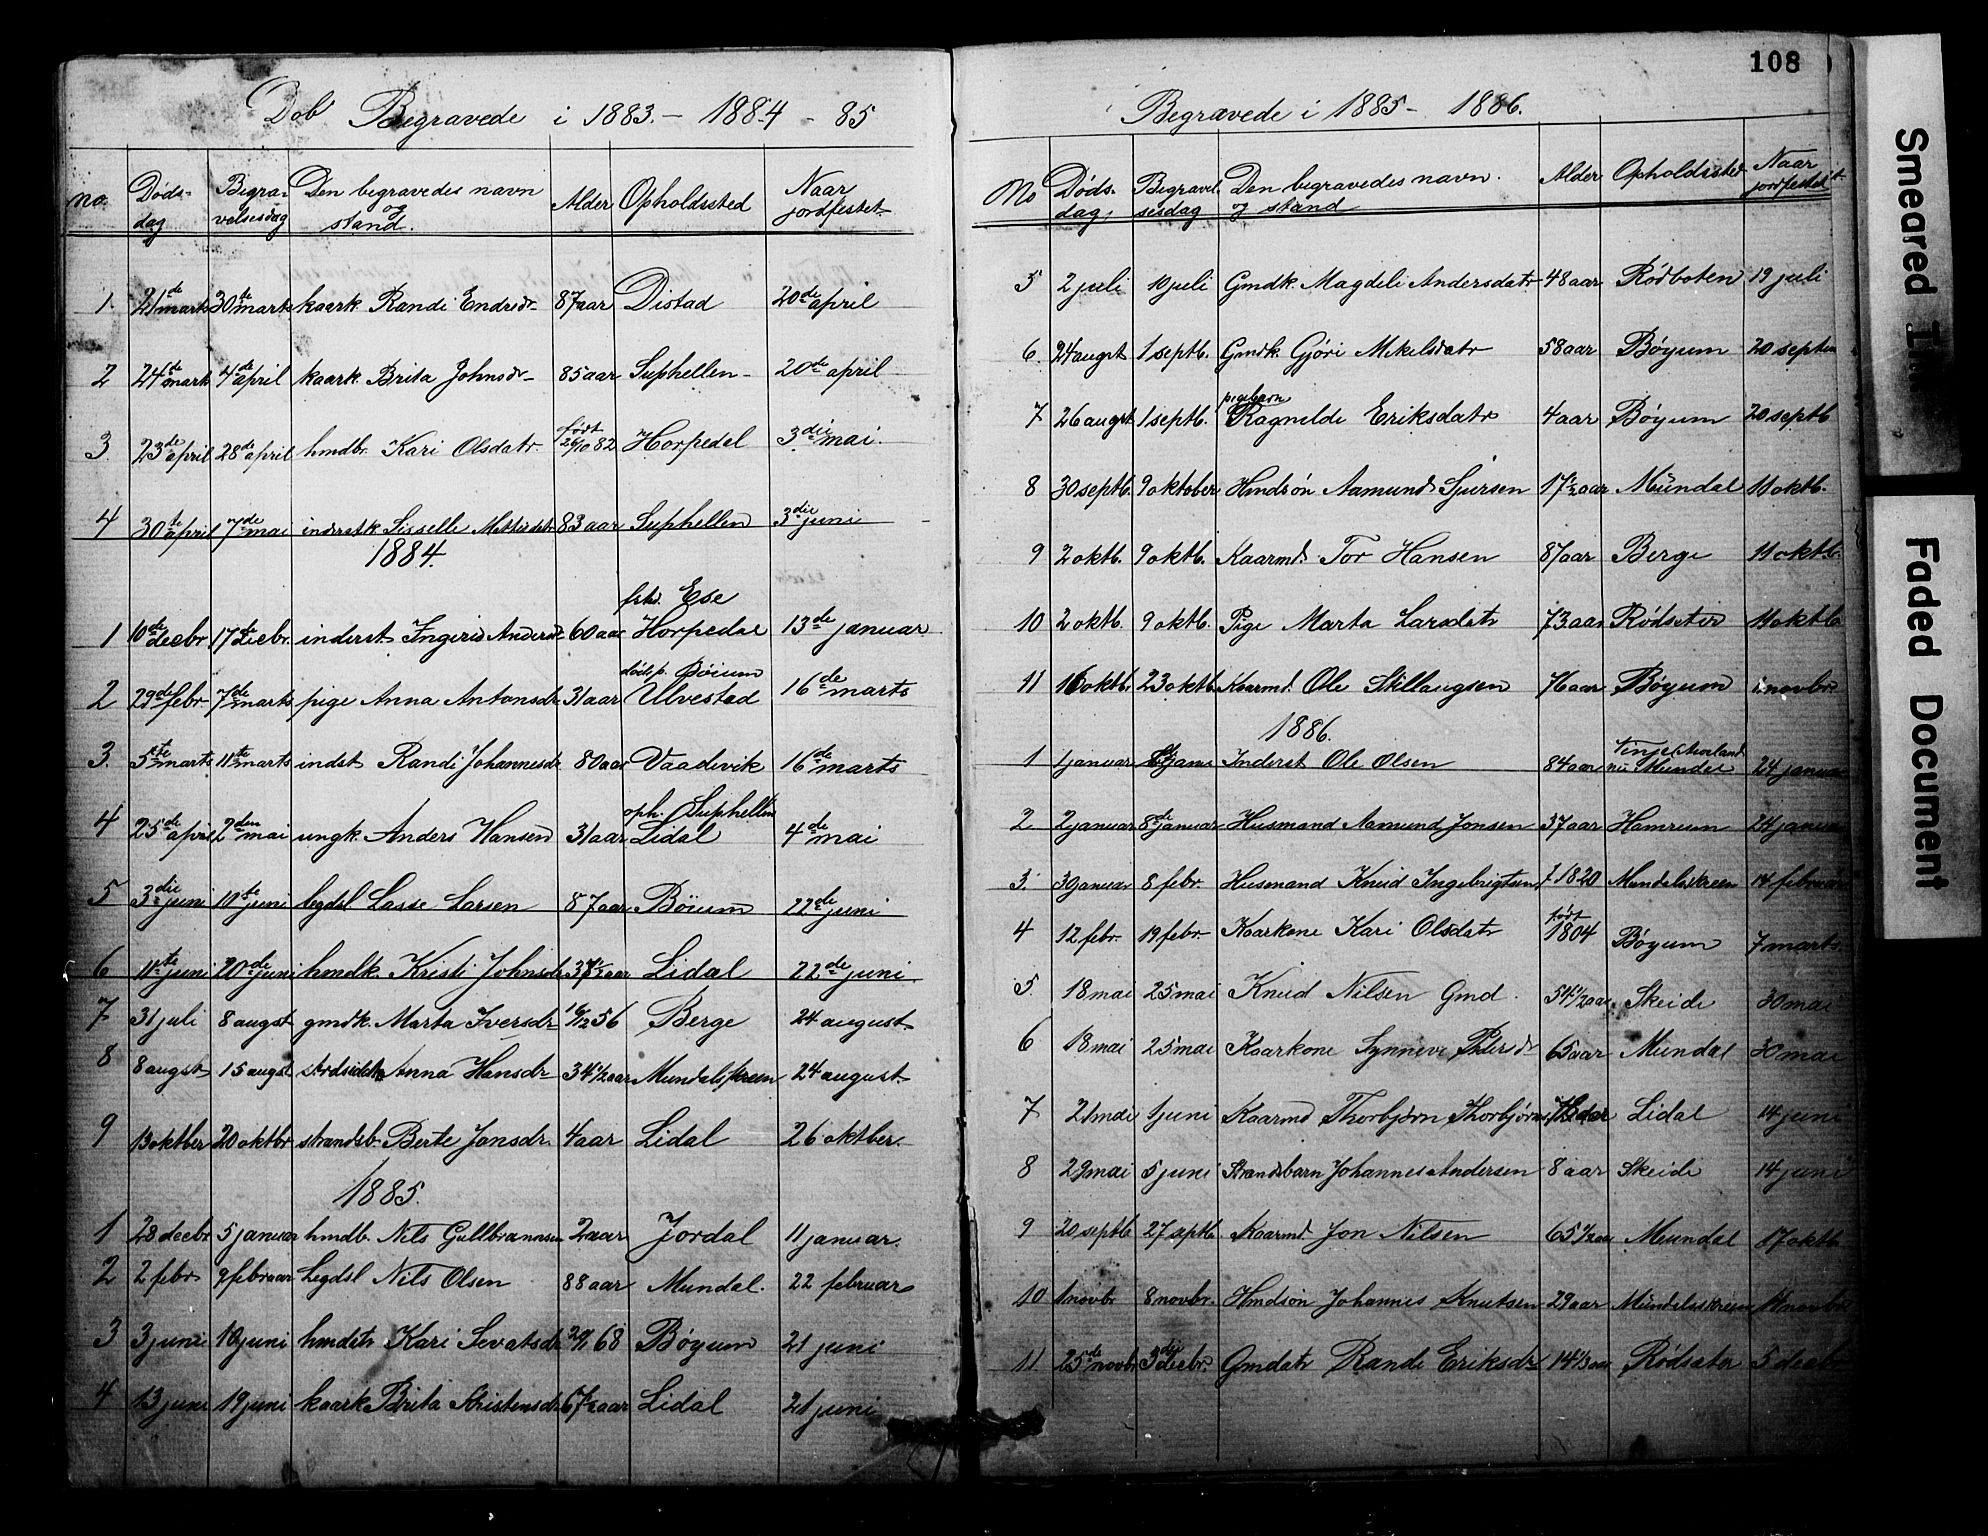 Døb Begravede i 1883. – 1884 – 85
no. Døds-dag Begra-velsesdag Den begravedes navn og stand. Alder Opholdssted Naar jordfestet
1. 21de marts 30te marts kaark. Randi Endresdr 87 aar Distad 20de april
2 24de marts 4de april kaark. Brita Johnsdr 85 aar Suphellen 20de april
3. 23de april 28de april hmdbr. Kari Olsdatr. født 26/10 82 Horpedal 3die mai.
4 30te april 7de mai inderstk. Sisselle 83 aar Suphellen 3die juni
1884.
1 10de decbr 17de decbr. inderst Ingerid Andersdr 60 aar Ese Horpedal 13de januar
2 29de febr 7de marts pige Anna Antonsdr. 31 aar døde p. Bøium Ulvestad 16de marts
3. 5te marts 11te marts indst Randi Johannesdr 80 aar Vaadevik 16de marts
4 25de april 2den mai ungk. Anders Hansen 31 aar oph. Suphellen Lidal 4de mai
5 3die juni 10te juni legdsl. Lasse Larsen 87 aar Bøium 22de juni
6 11te juni 20de juni hmdk. Kristi Johnsdr. aar Lidal 22de juni.
7 31 juli 8 augst gmdk. Marta Iversdr 16/12 56 Berge 24 august
8 8 augst 15 augst Anna Hansdr 34 1/2 aar Mundalsskreen 24 august
9 13 oktber 20 oktbr strandsb. Berte Jonsdr. 4 aar Lidal 26 oktber.
1885.
1 28 decbr 5 januar hmdb. Nils Gullbrannsen 2 aar Jordal 11 januar.
2 2 febr 9 februar Legdsl Nils Olsen 88 aar Mundal. 22 februar
3 3 juni 10 juni hmdatr Kari Sevatsdr 20/1 68 Bøyum 21 juni
4 13 juni 19 juni kaark Brita Kristensdr 67 1/2 aar Lidal 21 juni
108
Begravede i 1885 – 1886.
No Døds-dag. Begravel-sesdag Den begravedes navn. og stand Alder Opholdssted Naar jordfestet
5 2 juli 10 juli Gmdk. Magdeli Andersdatr 48 aar Rødboten 19 juli
6. 24 augst 1 septb. Gmdk. Gjøri Mikelsdatr 58 aar Bøyum 20 septem
7 26 augst 1 septb. pigebarn Ragnilde Eriksdatr 4 aar Bøyum 20 septb
8 30 septb. 9 oktober Hmdsøn Aamund Sjursen 17 1/2 aar Mundal 11 oktb.
9 2 oktb. 9 oktb. Kaarmd. Tor Hansen 87 aar Berge 11 oktb.
10 2 oktb. 9 oktb. Pige Marta Larsdatr 73 aar Rødseter 11 oktb
11 16 oktb. 23 oktb. Kaarmd. Ole Stillaugsen 76 aar Bøyum 1 novbr
1886.
1 1 januar Inderst Ole Olsen 84 aar nu Mundal 24 januar
2 2 januar 8de januar Husmand Aamund Jonsen 37 aar Hamrum 24 januar
3. 30 januar 8 febr. Husmand Knud Ingebrigtsen f. 1820 Mundalsskreen 14 februar
4 12 febr. 19 febr. Kaarkone Kari Olsdatr født 1804 Bøyum 7 marts
5. 18 mai 25 mai Knud Nilsen Gmd. 54 1/2 aar Skeide 30 mai
6 18 mai 25 mai Kaarkone Synneve Pedersdr 65 aar Mundal 30 mai
7 21 mai 1 juni Kaarmd Thorbjørn Thorbjørns Lidal 14 juni
8 29 mai 5 juni Strandsbarn Johannes Andersen 8 aar Skeide 14 juni
9 20 septb 27 septb Kaarmd Jon Nilsen 65 1/2 aar Mundal 17 oktb
10 1 novbr 8 novbr. Hmdsøn Johannes Knutsen 29 aar Mundalsskreen 14 novbr
11. 25de novbr 3die decbr. Gmdatr Randi Eriksdr 14 1/3 aar Rødsæter 5 decbr
Smeared
Faded Document